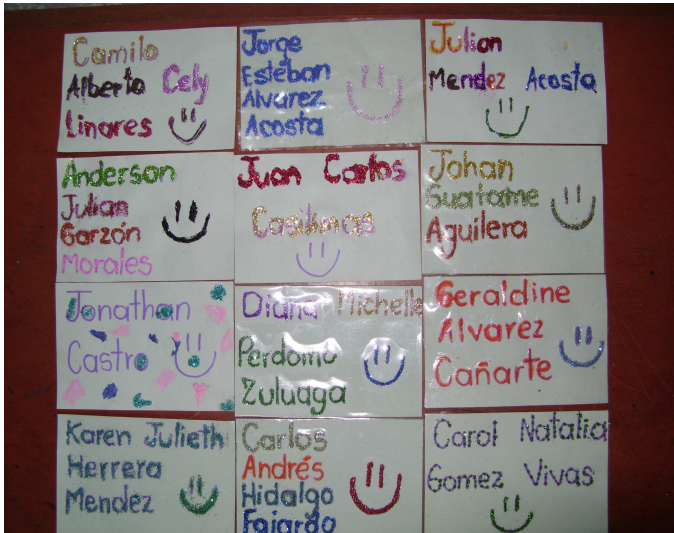 Camilo
Alberto Cely
Linares
Jorge
Esteban
Alvarez
Acosta
Julian
Mendez Acosta
Anderson
Julian
Garzón
Morales
Juan Carlos
Casilimas
Johan
Guatame
Aguilera
Jonathan
Castro
Diana Michelle
Perdomo
Zuluaga
Geraldine
Alvarez
Cañarte
Karen Julieth
Herrera
Mendez
Carlos
Andrés
Hidalgo
Fajardo
Carol Natalia
Gomez Vivas